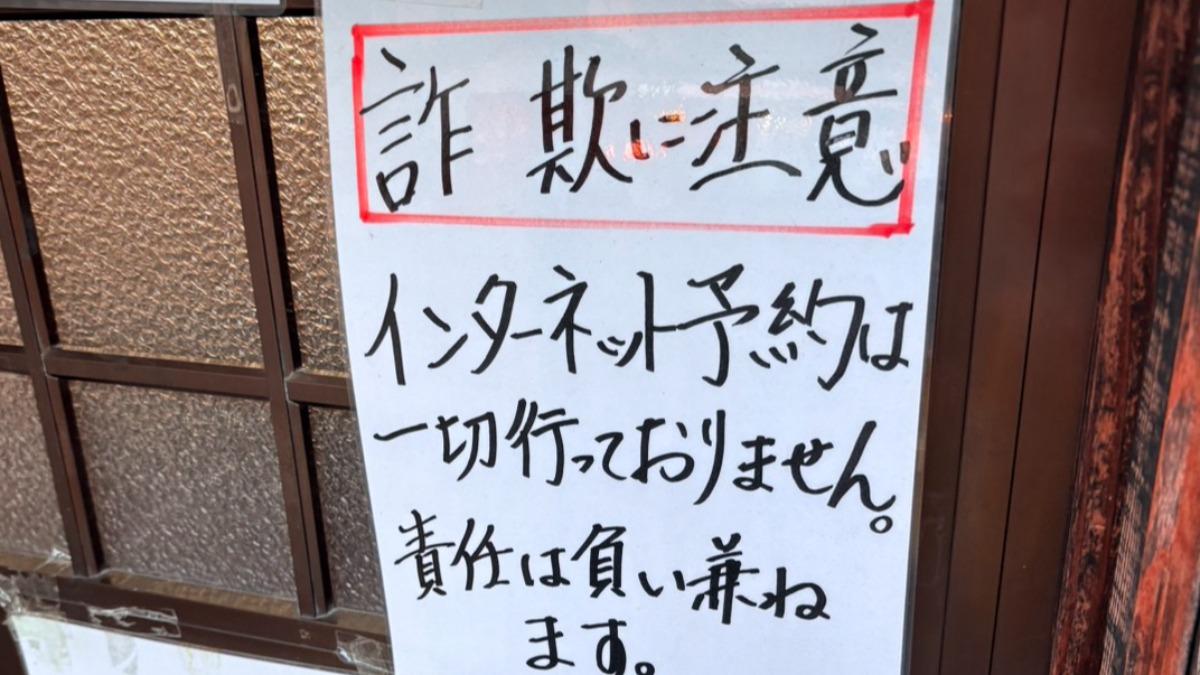 詐欺に注意
インターネット予約は
一切行っておりません。
責任は負い兼ね
ます。